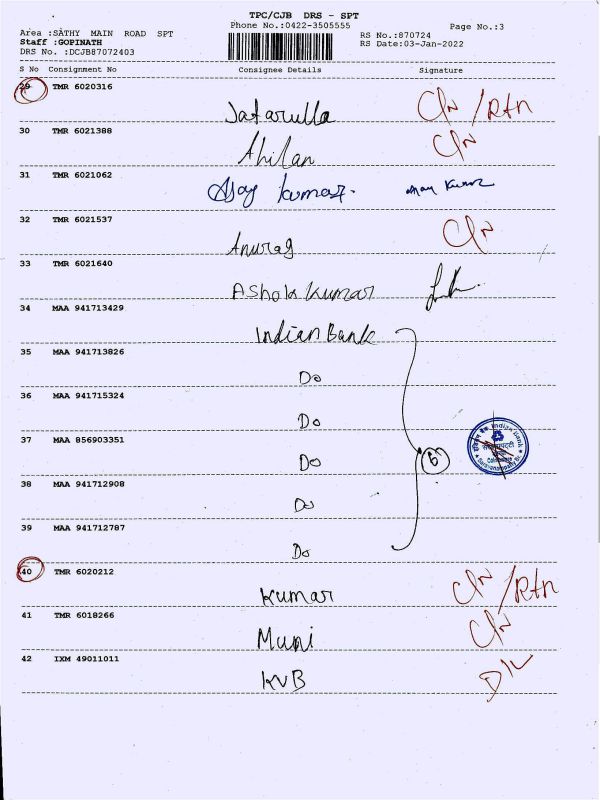 TPC/CJB DRS - SPT
Phone No.:0422-3505555
Page No.:3
Area :SATHY MAIN ROAD SPT
Staff :GOPINATH
DRS No. :DCJB87072403
RS No.:870724
RS Date:03-Jan-2022
S No Consignment No Consignee Details Signature
29 TMR 6020316
Jafarulla
30 TMR 6021388
Ahilan
31 TMR 6021062
Ajay Kumar.
32 TMR 6021537
Anurag
33 TMR 6021640
Ashok Kumar
34 MAA 941713429
Indian Bank
35 MAA 941713826
Do
36 MAA 941715324
Do
37 MAA 856903351
Do
6
38 MAA 941712908
Do
39 MAA 941712787
Do
40 TMR 6020212
Kumar
41 TMR 6018266
Muni
42 IXM 49011011
KVB
D/L